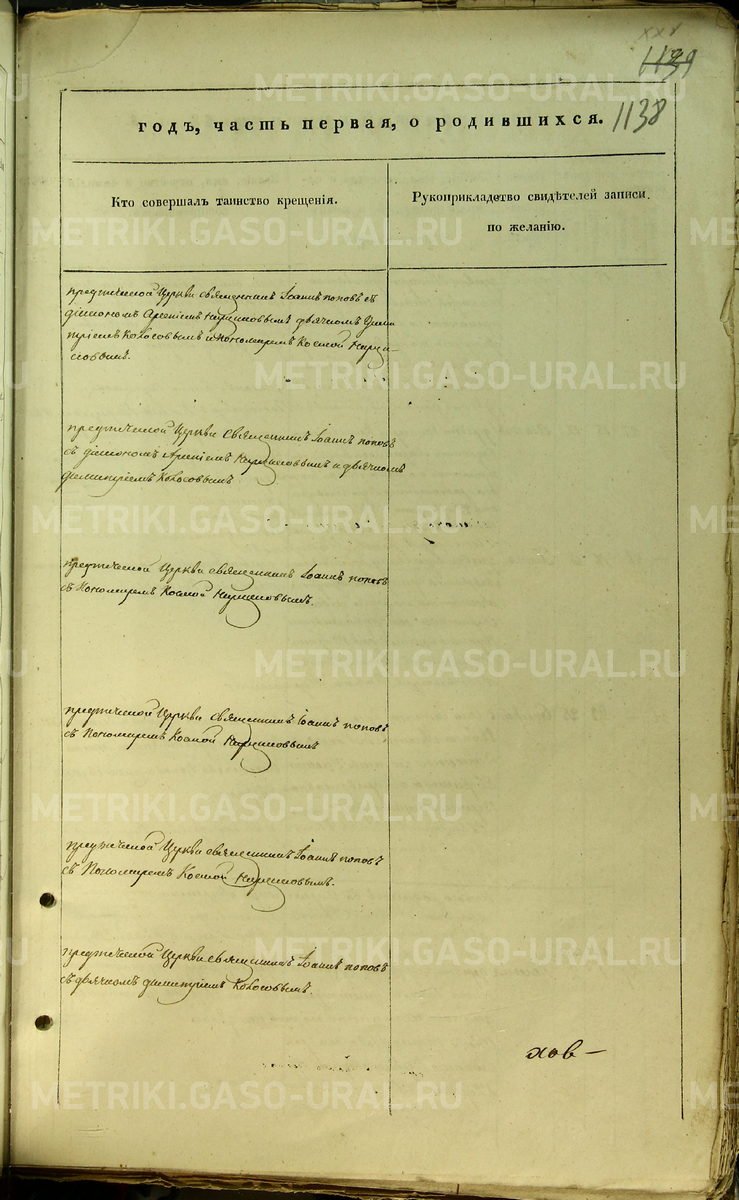 1139
1138
годъ, часть первая, о родившихся.
Кто совершалъ таинство крещенія.
Рукоприкладство свидѣтелей записи.
по желанію.
предтечевой Церкви священникъ Іоаннъ поповъ съ
діакономъ Арсеніемъ Нарциссовымъ дьячкомъ Дими
тріемъ Колосовымъ и пономаремъ Космой Нарци-
ссовымъ.
предтечевой Церкви священникъ Іоаннъ поповъ
съ діакономъ Арсеніемъ Нарциссовымъ и дьячкомъ
димитріемъ Колосовымъ
предтечевой Церкви священникъ Іоаннъ поповъ
съ Пономаремъ Космой Нарциссовымъ.
предтечевой Церкви священникъ Іоаннъ поповъ
съ Пономаремъ Космой Нарциссовымъ
предтечевой Церкви священникъ Іоаннъ поповъ
съ Пономаремъ Космой Нарциссовымъ.
предтечевой Церкви священникъ Іоаннъ поповъ
съ дьячкомъ димитріемъ Колосовымъ.
ховъ
METRIKI.GASO-URAL.RU